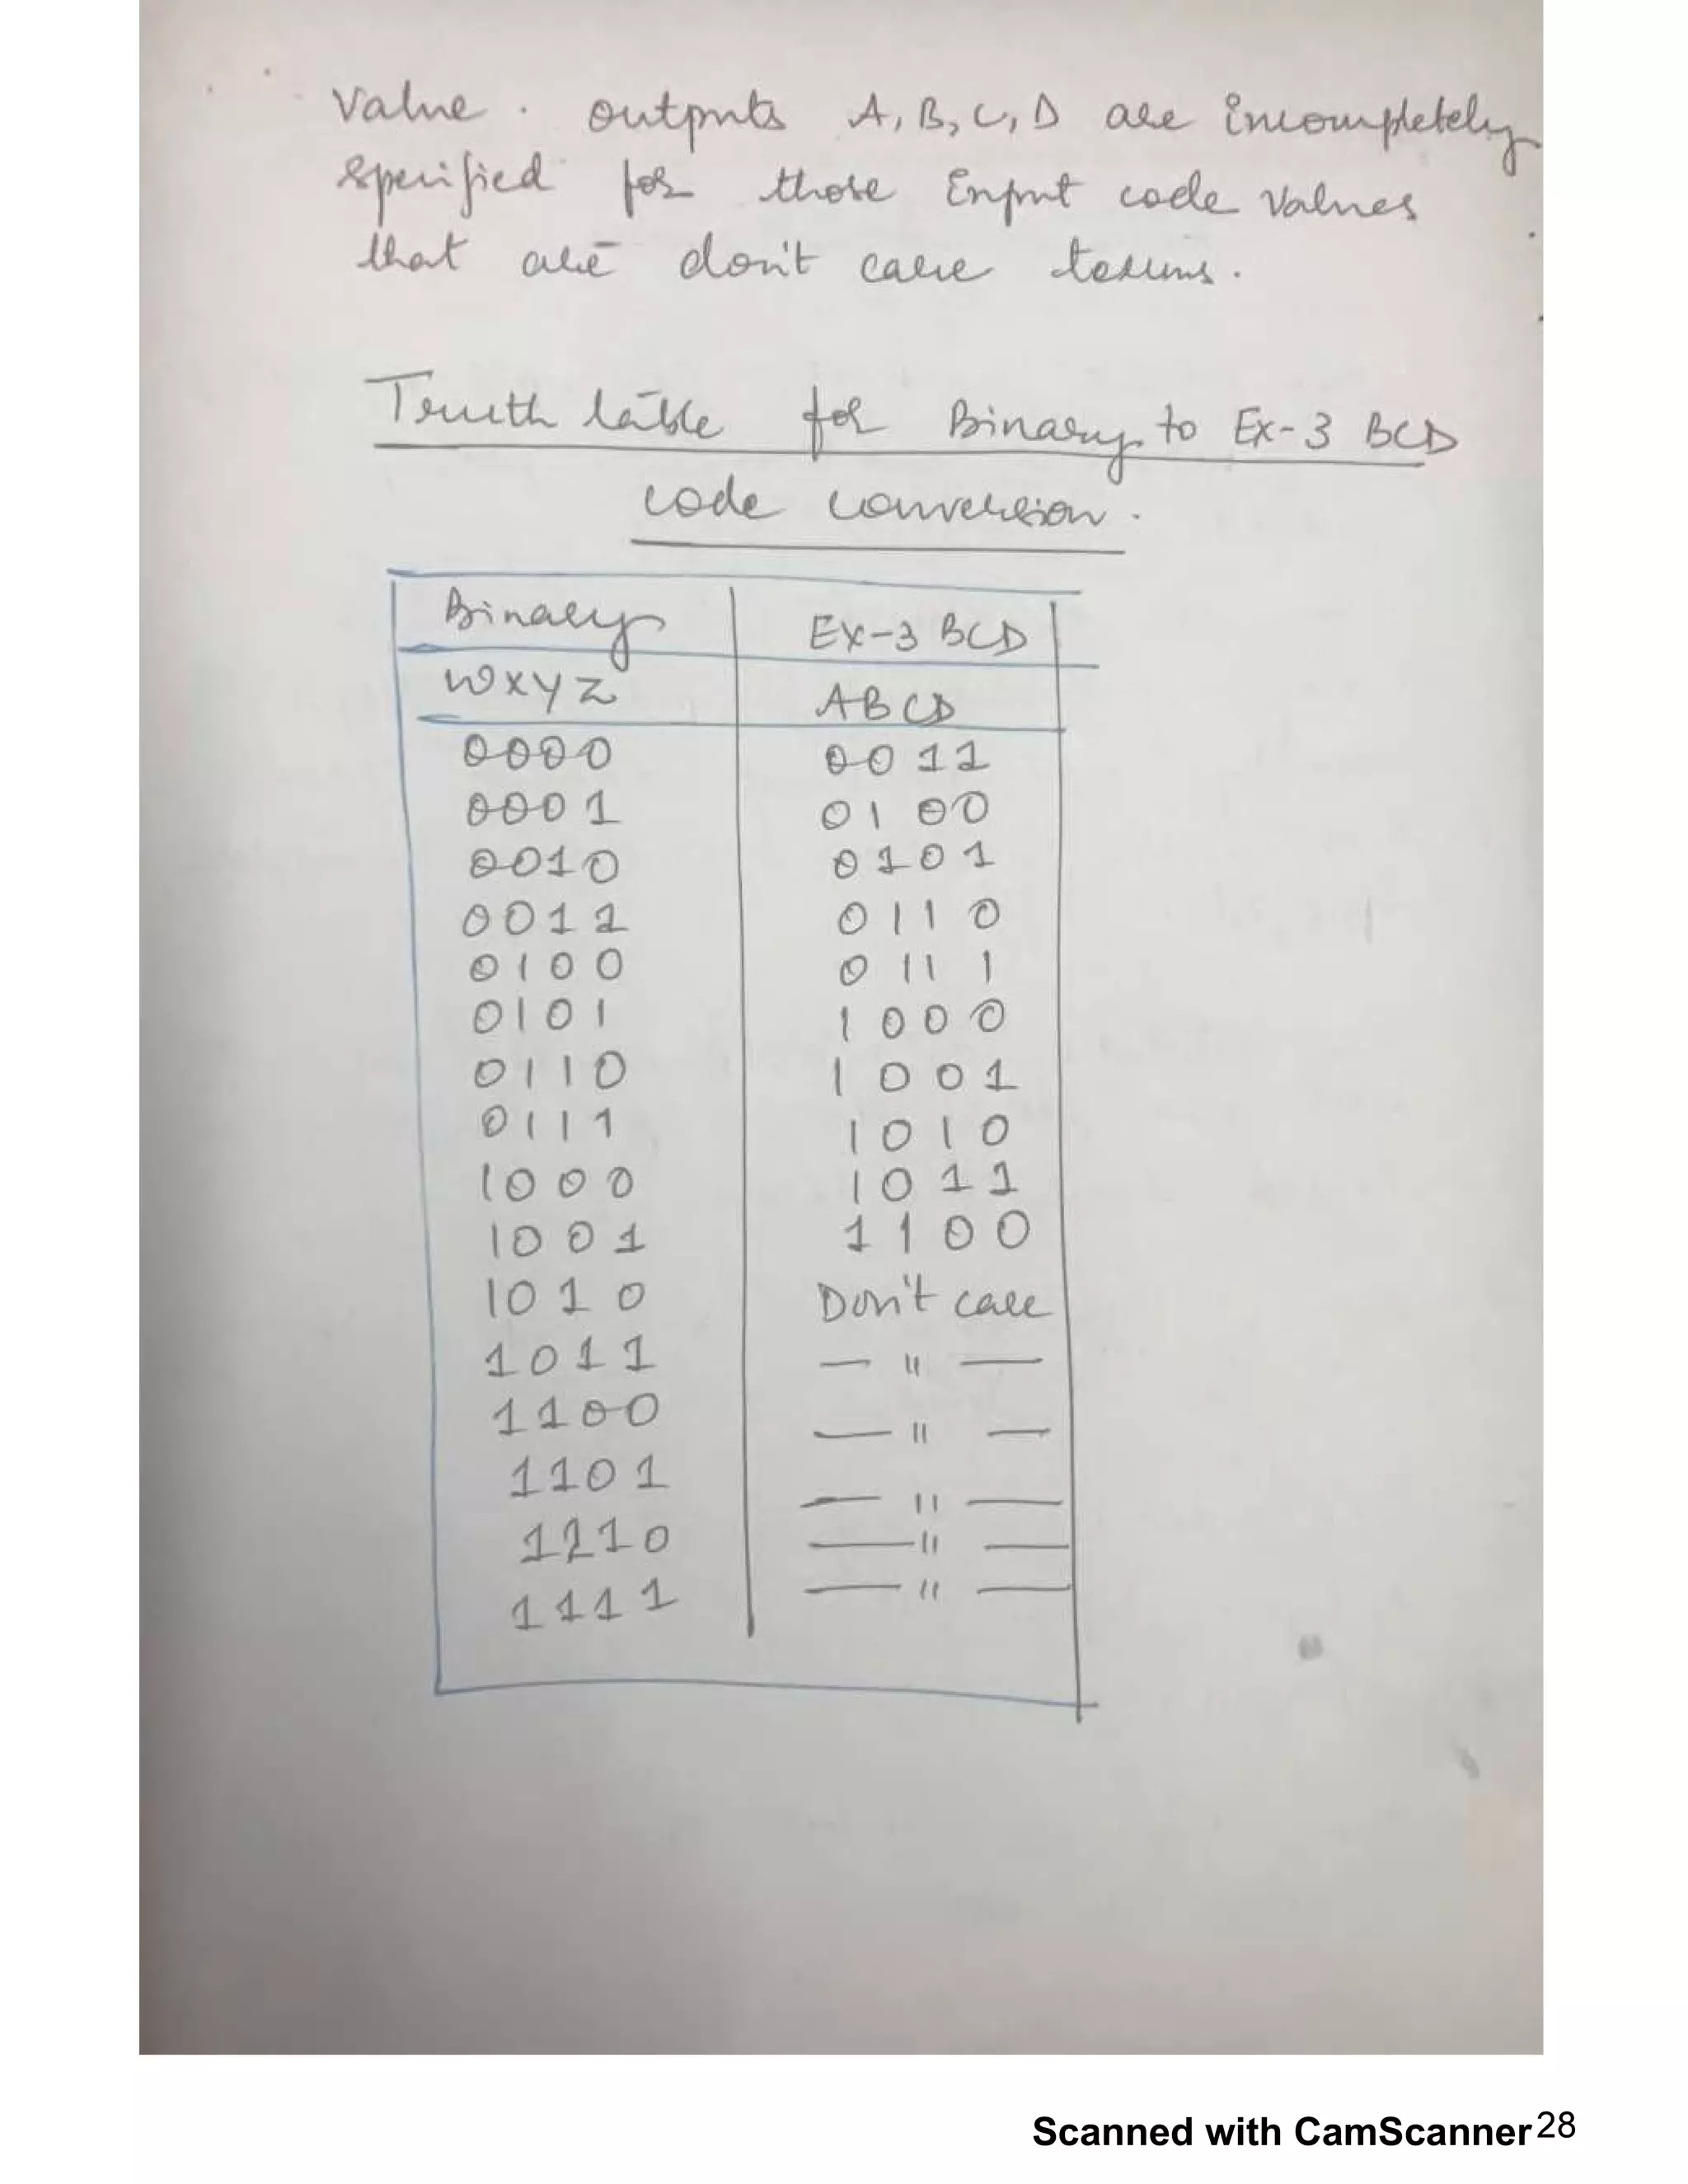 Value. outputs A, B, C, D are incompletely
specified for those input code values
that are don't care terms.
Truth table for Binary to Ex-3 BCD
code conversion.
Binary EX-3 BCD
WXYZ ABCD
0000 0011
0001 0100
0010 0101
0011 0110
0100 0111
0101 1000
0110 1001
0111 1010
1000 1011
1001 1100
1010 Don't care
1011 — " —
1100 — " —
1101 — " —
1110 — " —
1111 — " —
Scanned with CamScanner 28